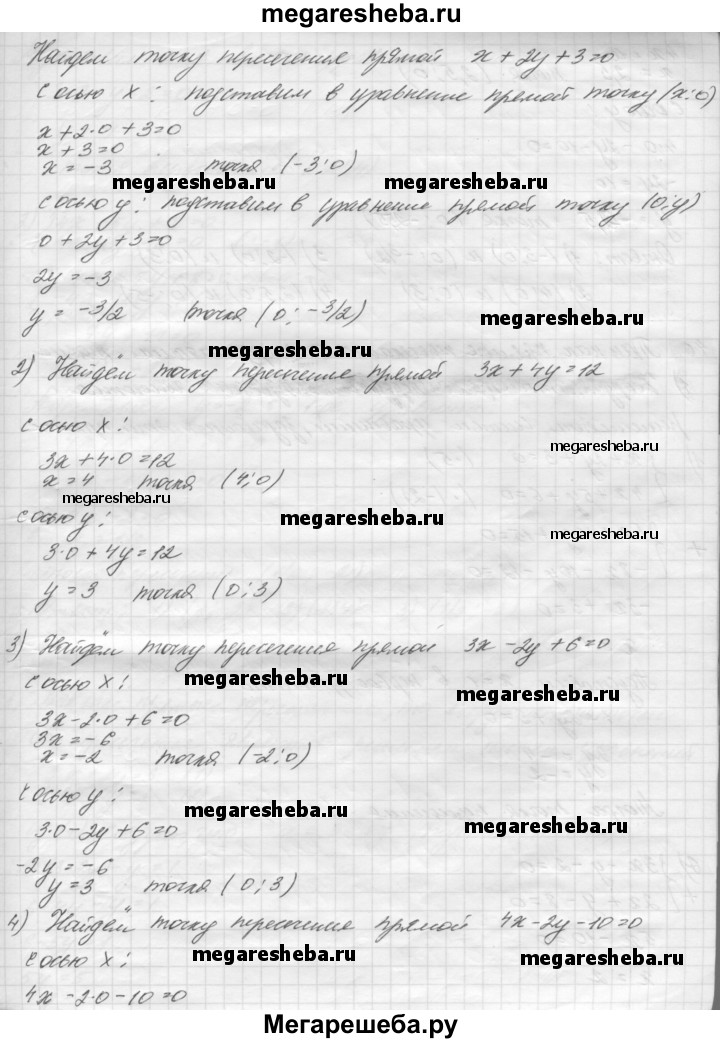 megaresheba.ru
Найдем точку пересечения прямой x + 2y + 3 = 0
с осью X: подставим в уравнение прямой точку (x; 0)
x + 2·0 + 3 = 0
x + 3 = 0
x = -3 точка (-3; 0)
megaresheba.ru megaresheba.ru
с осью y: подставим в уравнение прямой точку (0; y)
0 + 2y + 3 = 0
2y = -3
y = -3/2 точка (0; -3/2)
megaresheba.ru
megaresheba.ru
2) Найдём точку пересечение прямой 3x + 4y = 12
с осью X:
megaresheba.ru
3x + 4·0 = 12
x = 4 точка (4; 0)
megaresheba.ru
с осью y:
megaresheba.ru
megaresheba.ru
3·0 + 4y = 12
y = 3 точка (0; 3)
3) Найдём точку пересечения прямой 3x - 2y + 6 = 0
с осью X:
megaresheba.ru
megaresheba.ru
3x - 2·0 + 6 = 0
3x = -6
x = -2 точка (-2; 0)
с осью y:
megaresheba.ru
megaresheba.ru
3·0 - 2y + 6 = 0
-2y = -6
y = 3 точка (0; 3)
4) Найдём точку пересечение прямой 4x - 2y - 10 = 0
с осью X:
megaresheba.ru
megaresheba.ru
4x - 2·0 - 10 = 0
Мегарешеба.ру